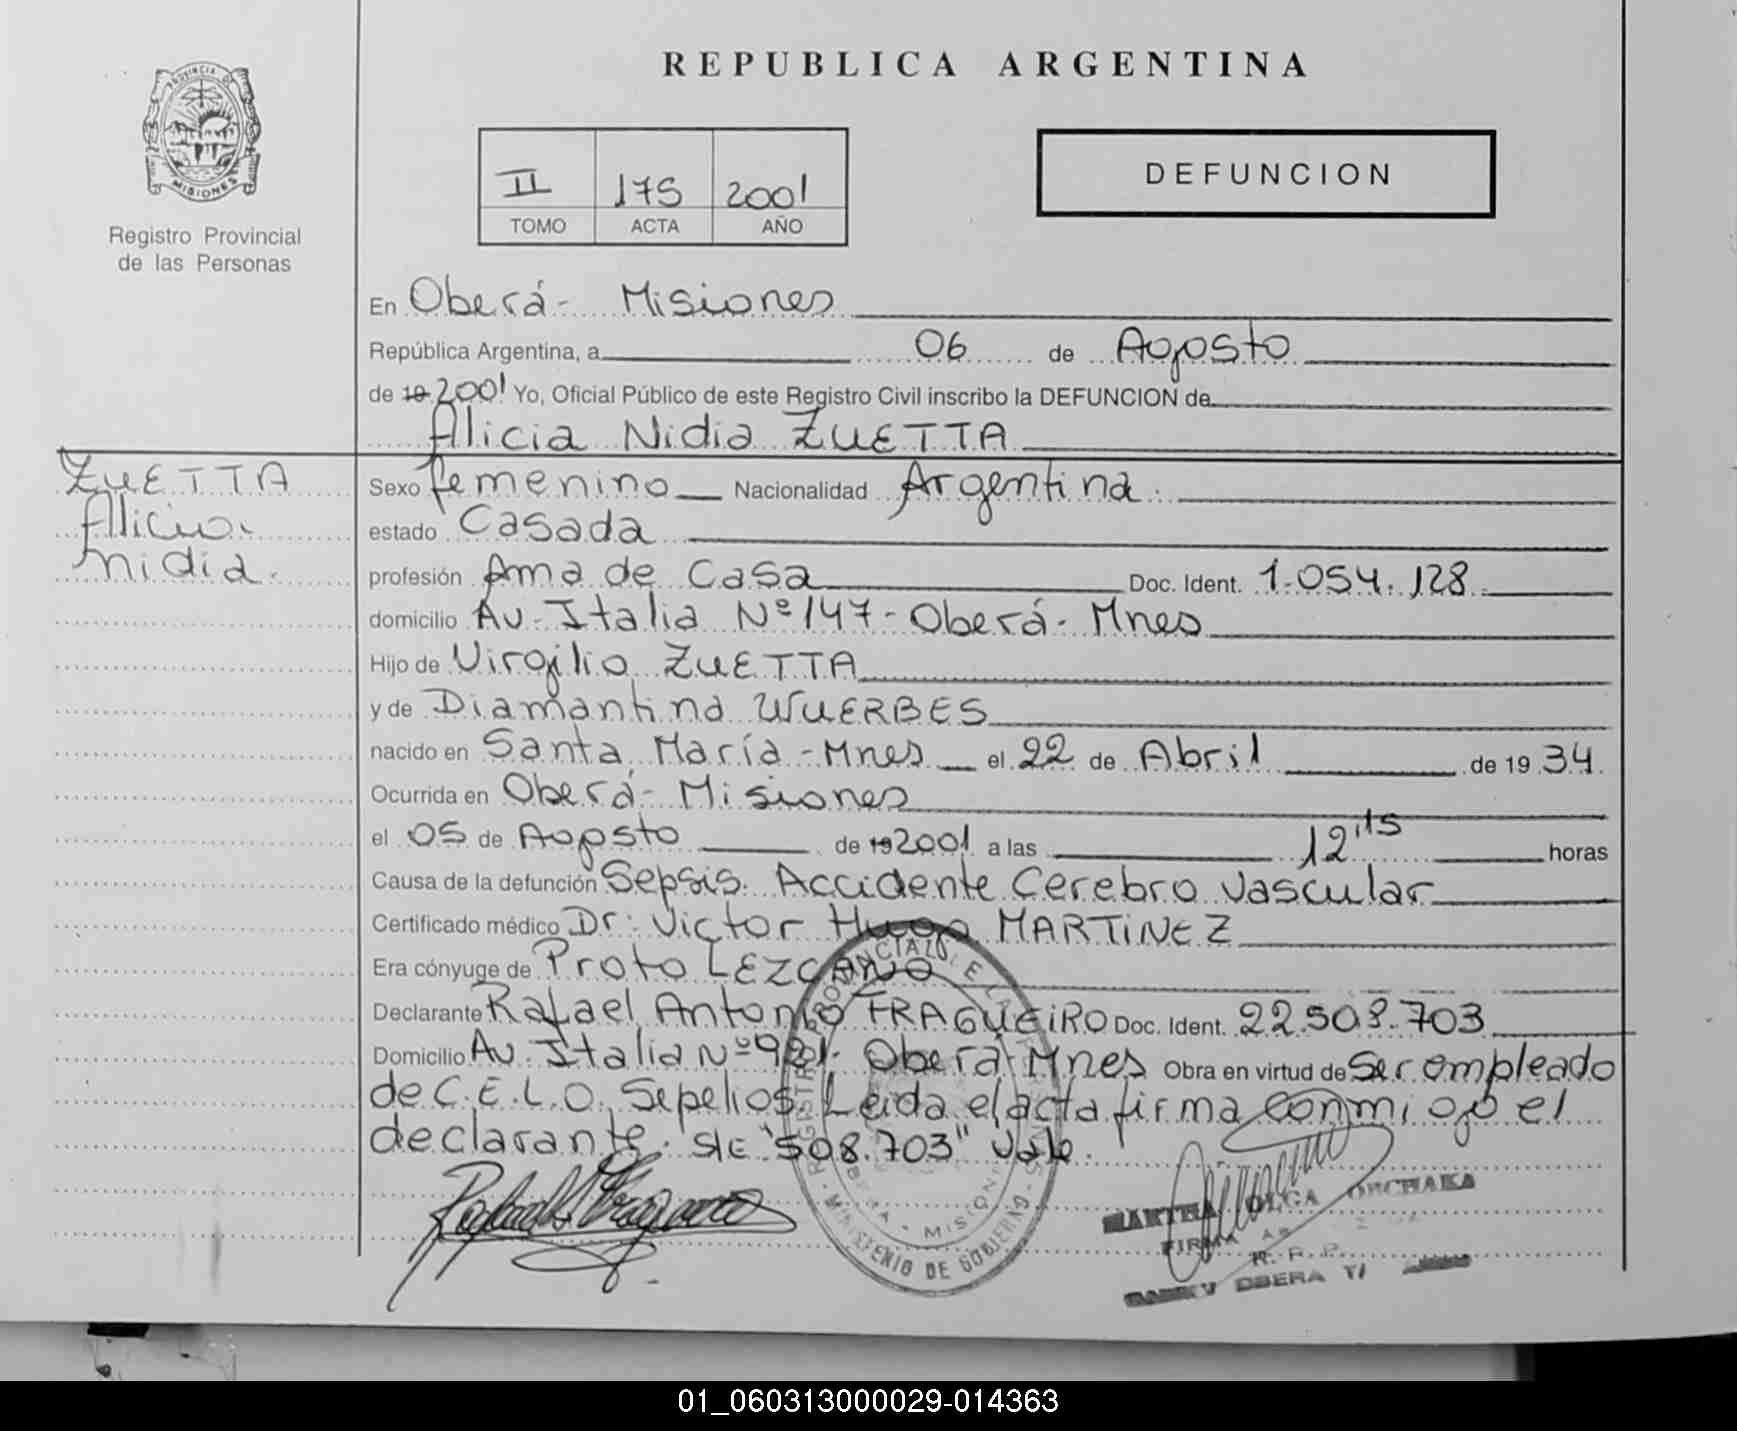 REPUBLICA ARGENTINA
PROVINCIA DE
MISIONES
Registro Provincial
de las Personas
II 175 2001
TOMO ACTA AÑO
DEFUNCION
En Oberá - Misiones
República Argentina, a 06 de Agosto
de 19 2001 Yo, Oficial Público de este Registro Civil inscribo la DEFUNCION de
Alicia Nidia ZUETTA
ZUETTA
Alicia
Nidia.
Sexo femenino Nacionalidad Argentina.
estado Casada
profesión Ama de Casa Doc. Ident. 1.054.128
domicilio Av. Italia Nº 147 - Oberá - Mnes
Hijo de Virgilio ZUETTA
y de Diamantina WUERBES
nacido en Santa María - Mnes el 22 de Abril de 19 34
Ocurrida en Oberá - Misiones
el 05 de Agosto de 19 2001 a las 12,15 horas
Causa de la defunción Sepsis. Accidente Cerebro Vascular
Certificado médico Dr: Victor Hugo MARTINEZ
Era cónyuge de Proto LEZCANO
Declarante Rafael Antonio FRAGUEIRO Doc. Ident. 22.508.703
Domicilio Av. Italia Nº 981. Oberá Mnes Obra en virtud de Ser empleado
de C.E.L.O. Sepelios. Leida el acta firma conmigo el
declarante. S/E "508.703" Vale.
MINISTERIO DE GOBIERNO
MISIONES
MARTHA OLGA
FIRMA
R. P. P.
OBERA
01_060313000029-014363